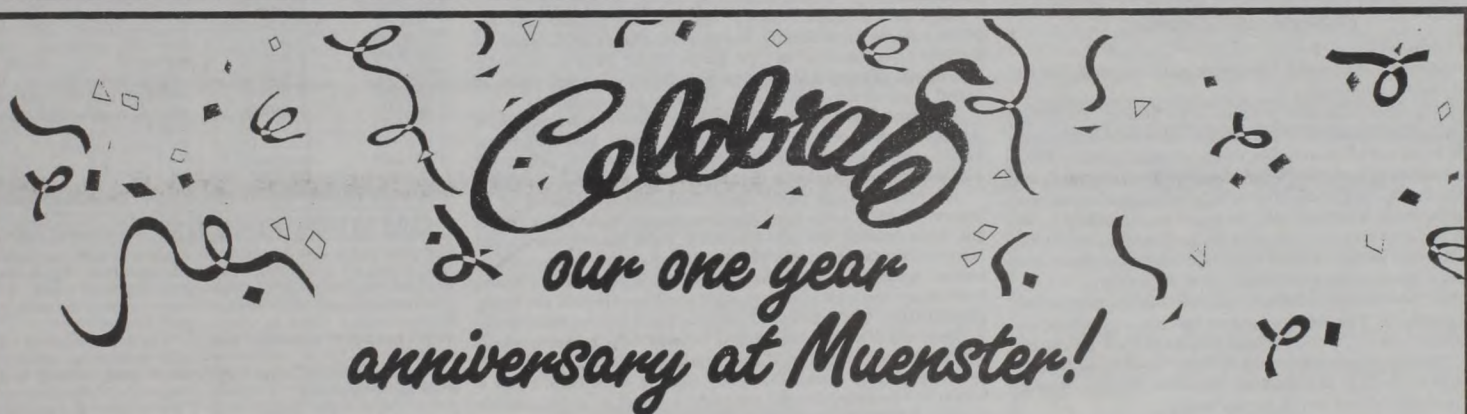 Celebrate
our one year
anniversary at Muenster!